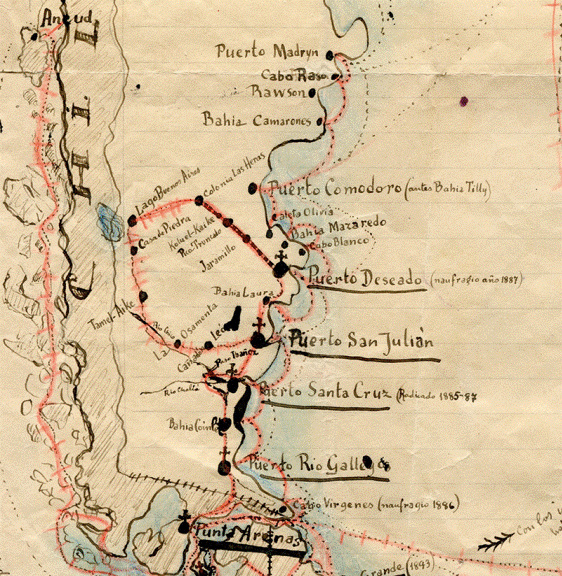 Ancud
CHIL
Puerto Madryn
Cabo Raso
Rawson
Bahia Camarones
Colonia Las Heras
Lago Buenos Aires
Puerto Comodoro (antes Bahia Tilly)
Caleta Olivia
Casa de Piedra
Koluel-Kaike
Pico Truncado
Bahia Mazaredo
Cabo Blanco
Jaramillo
Puerto Deseado (naufragio año 1887)
Bahia Laura
Tamel-Aike
La Osamenta
León
Puerto San Julián
Paso Ibañez
Puerto Santa Cruz (Radicado 1885-87
Rio
Bahia Coihue
Puerto Rio Gallegos
Cabo Virgenes (naufragio 1886)
Punta Arenas
Con los
Grande (1893)